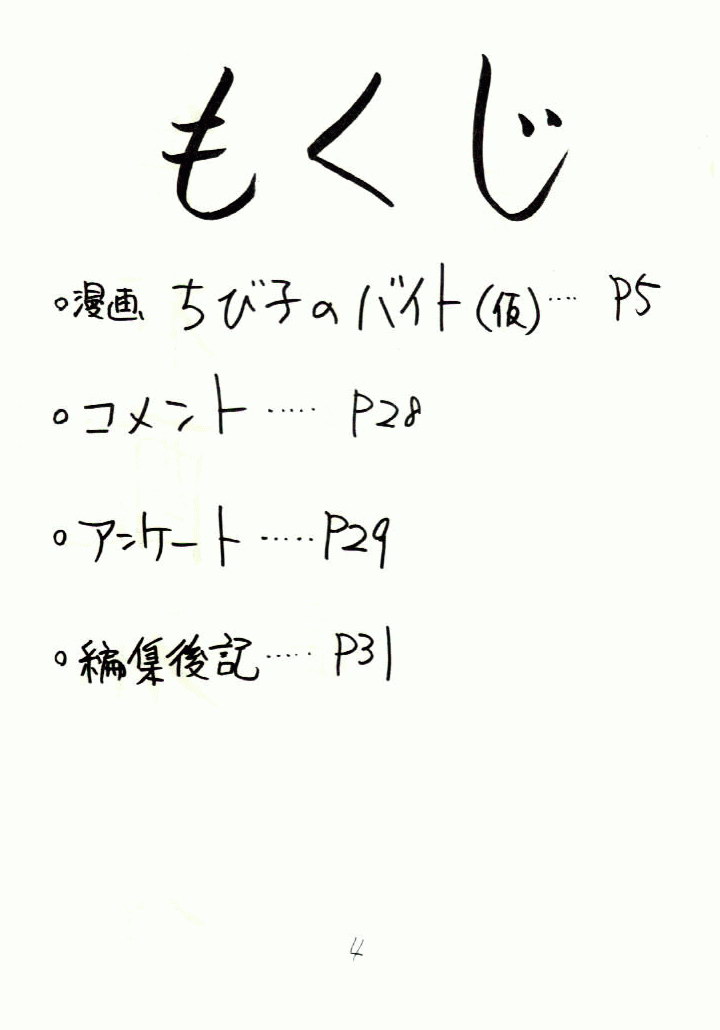 もくじ
○漫画 ちび子のバイト(仮)‥‥ P5
○コメント ‥‥‥ P28
○アンケート ‥‥‥ P29
○編集後記 ‥‥‥ P31
4